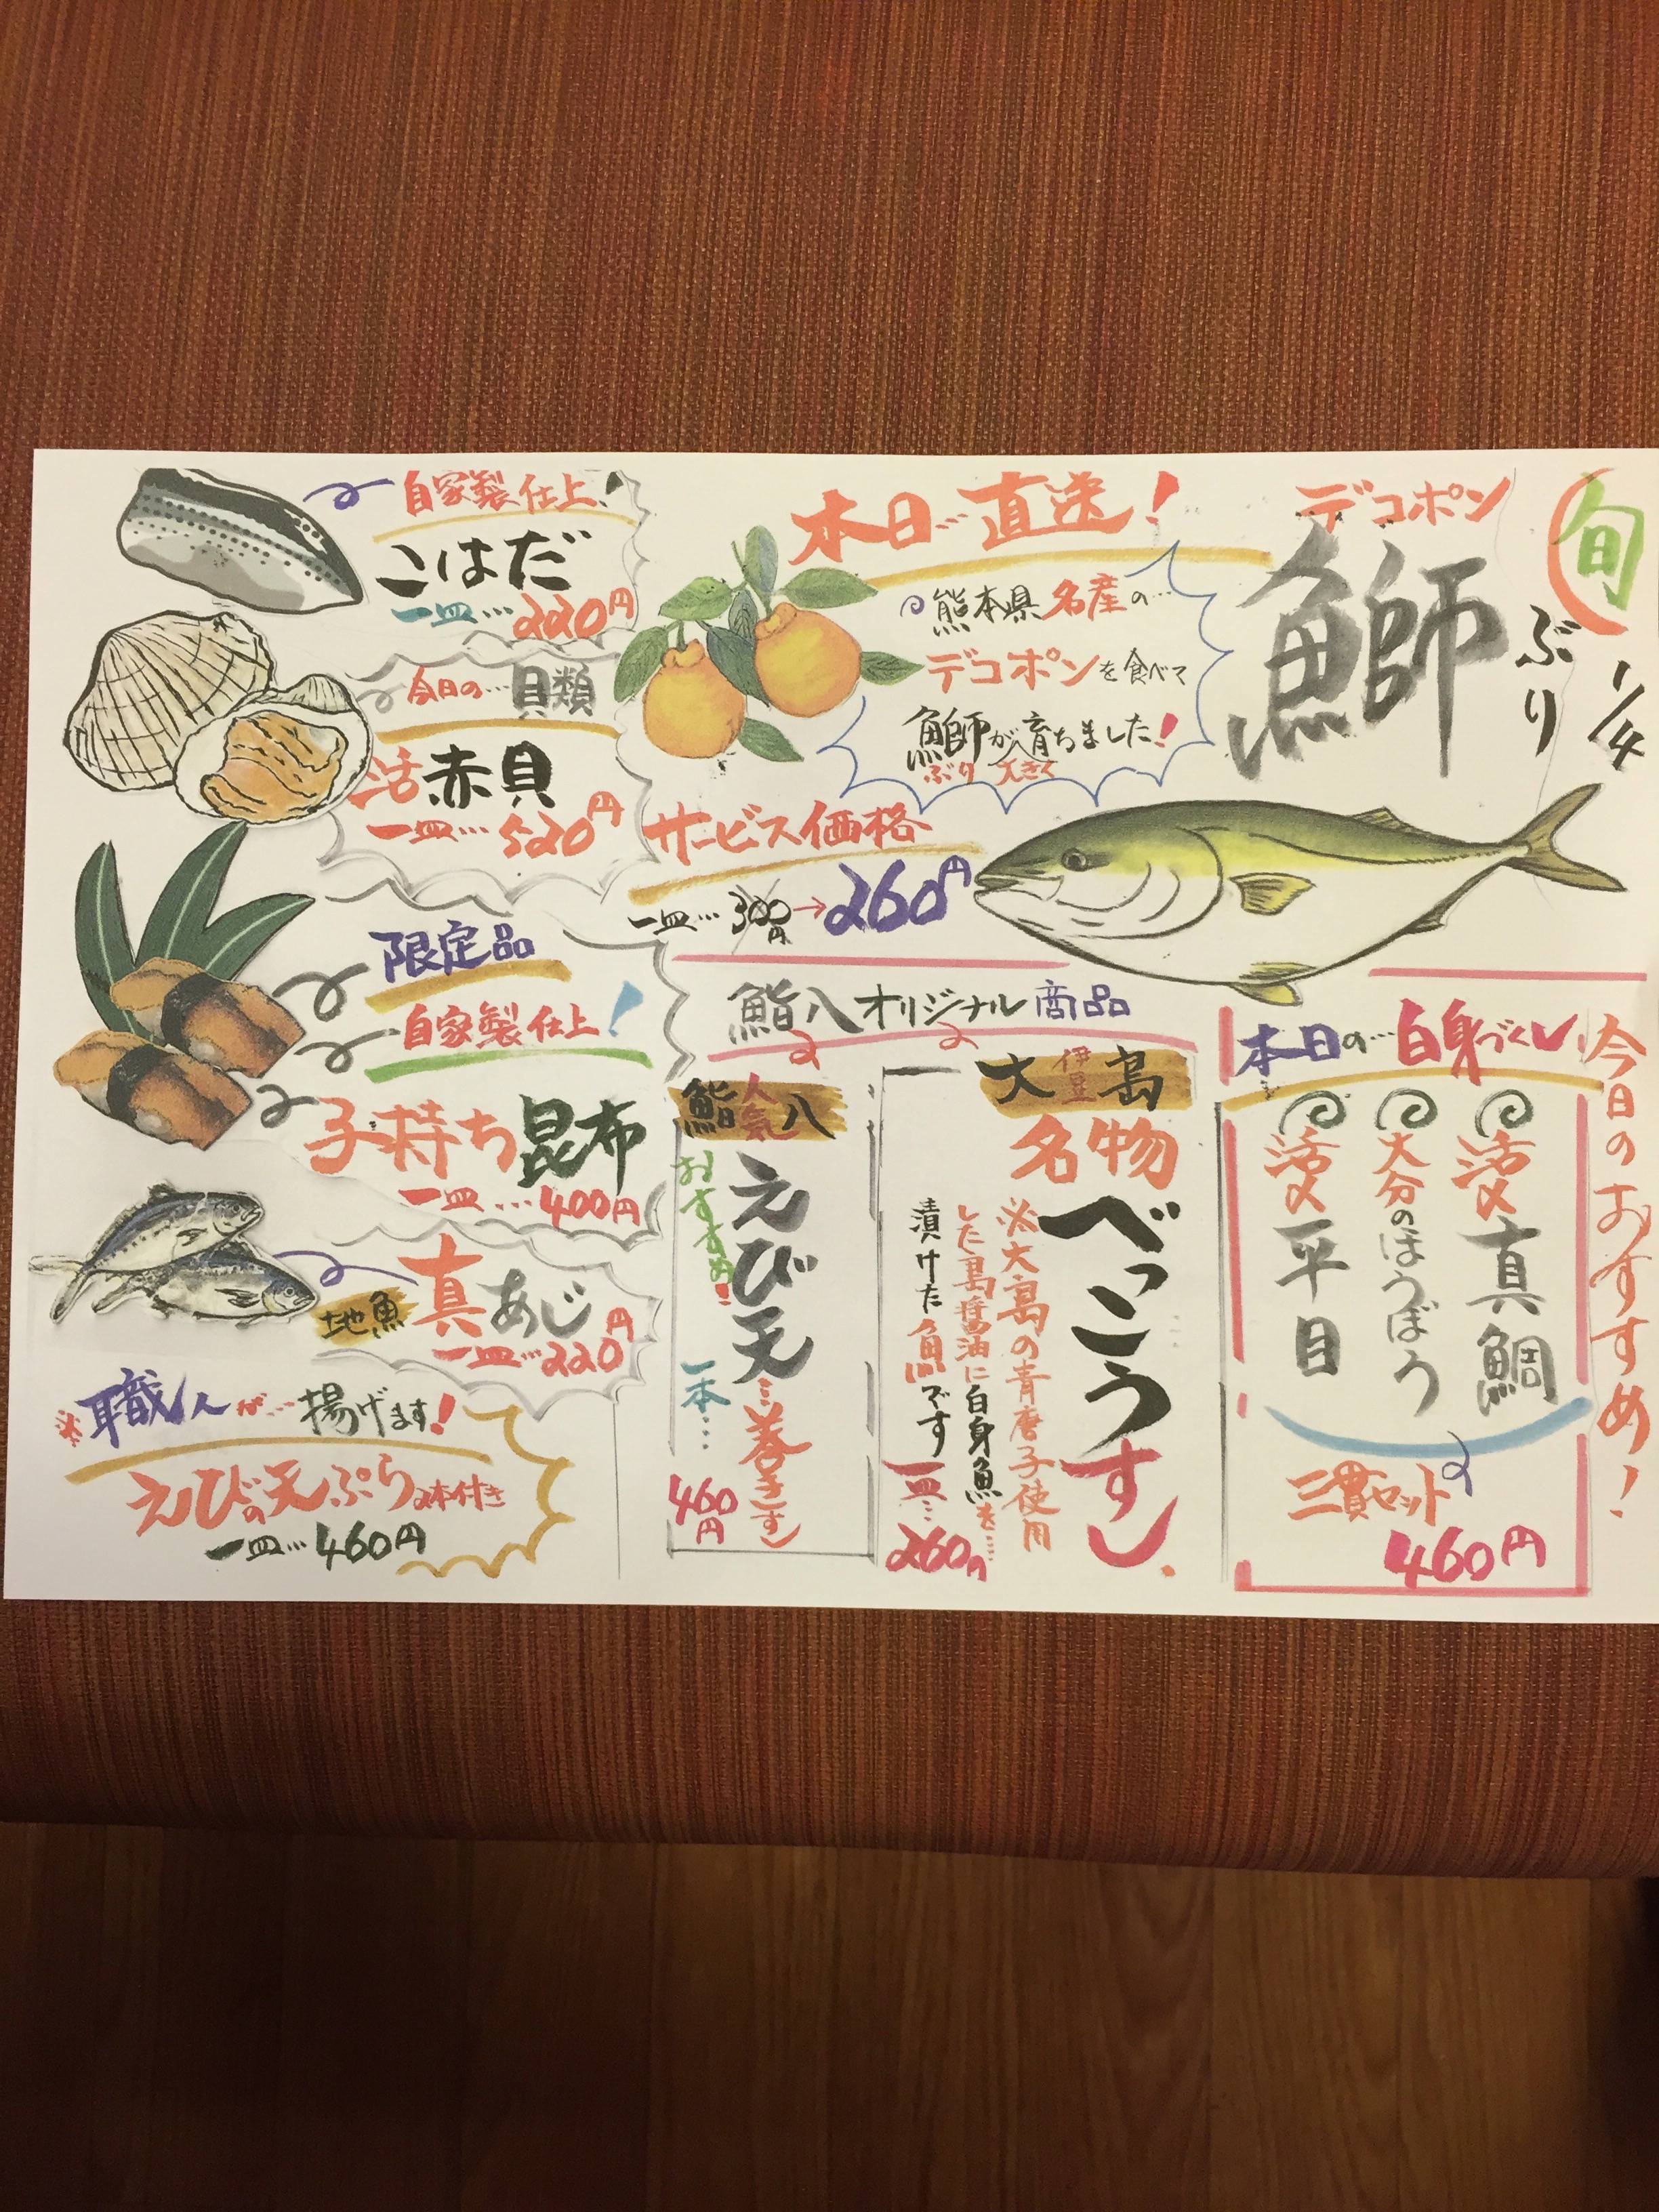 今日のおすすめ!
1/4
旬
デコポン
鰤
ぶり
本日…直送!
熊本県名産の…
デコポンを食べて
鰤が育ちました!
ぶり 大きく
サービス価格
一皿…300円→260円
本日の…白身づくし
活〆真鯛
大分のほうぼう
活〆平目
三貫セット
460円
鮨八オリジナル商品
伊豆
大島
名物
べっこうすし
※大島の青唐子使用
した島醤油に白身魚を…
漬けた魚です
一皿…260円
人気
鮨八
えび天…巻きすし
おすすめ!
一本…
460円
自家製仕上!
こはだ
一皿…220円
今日の…貝類
活赤貝
一皿…520円
限定品
自家製仕上!
子持ち昆布
一皿…400円
地魚
真あじ
一皿…220円
※職人が…揚げます!
えびの天ぷら2本付き
一皿…460円